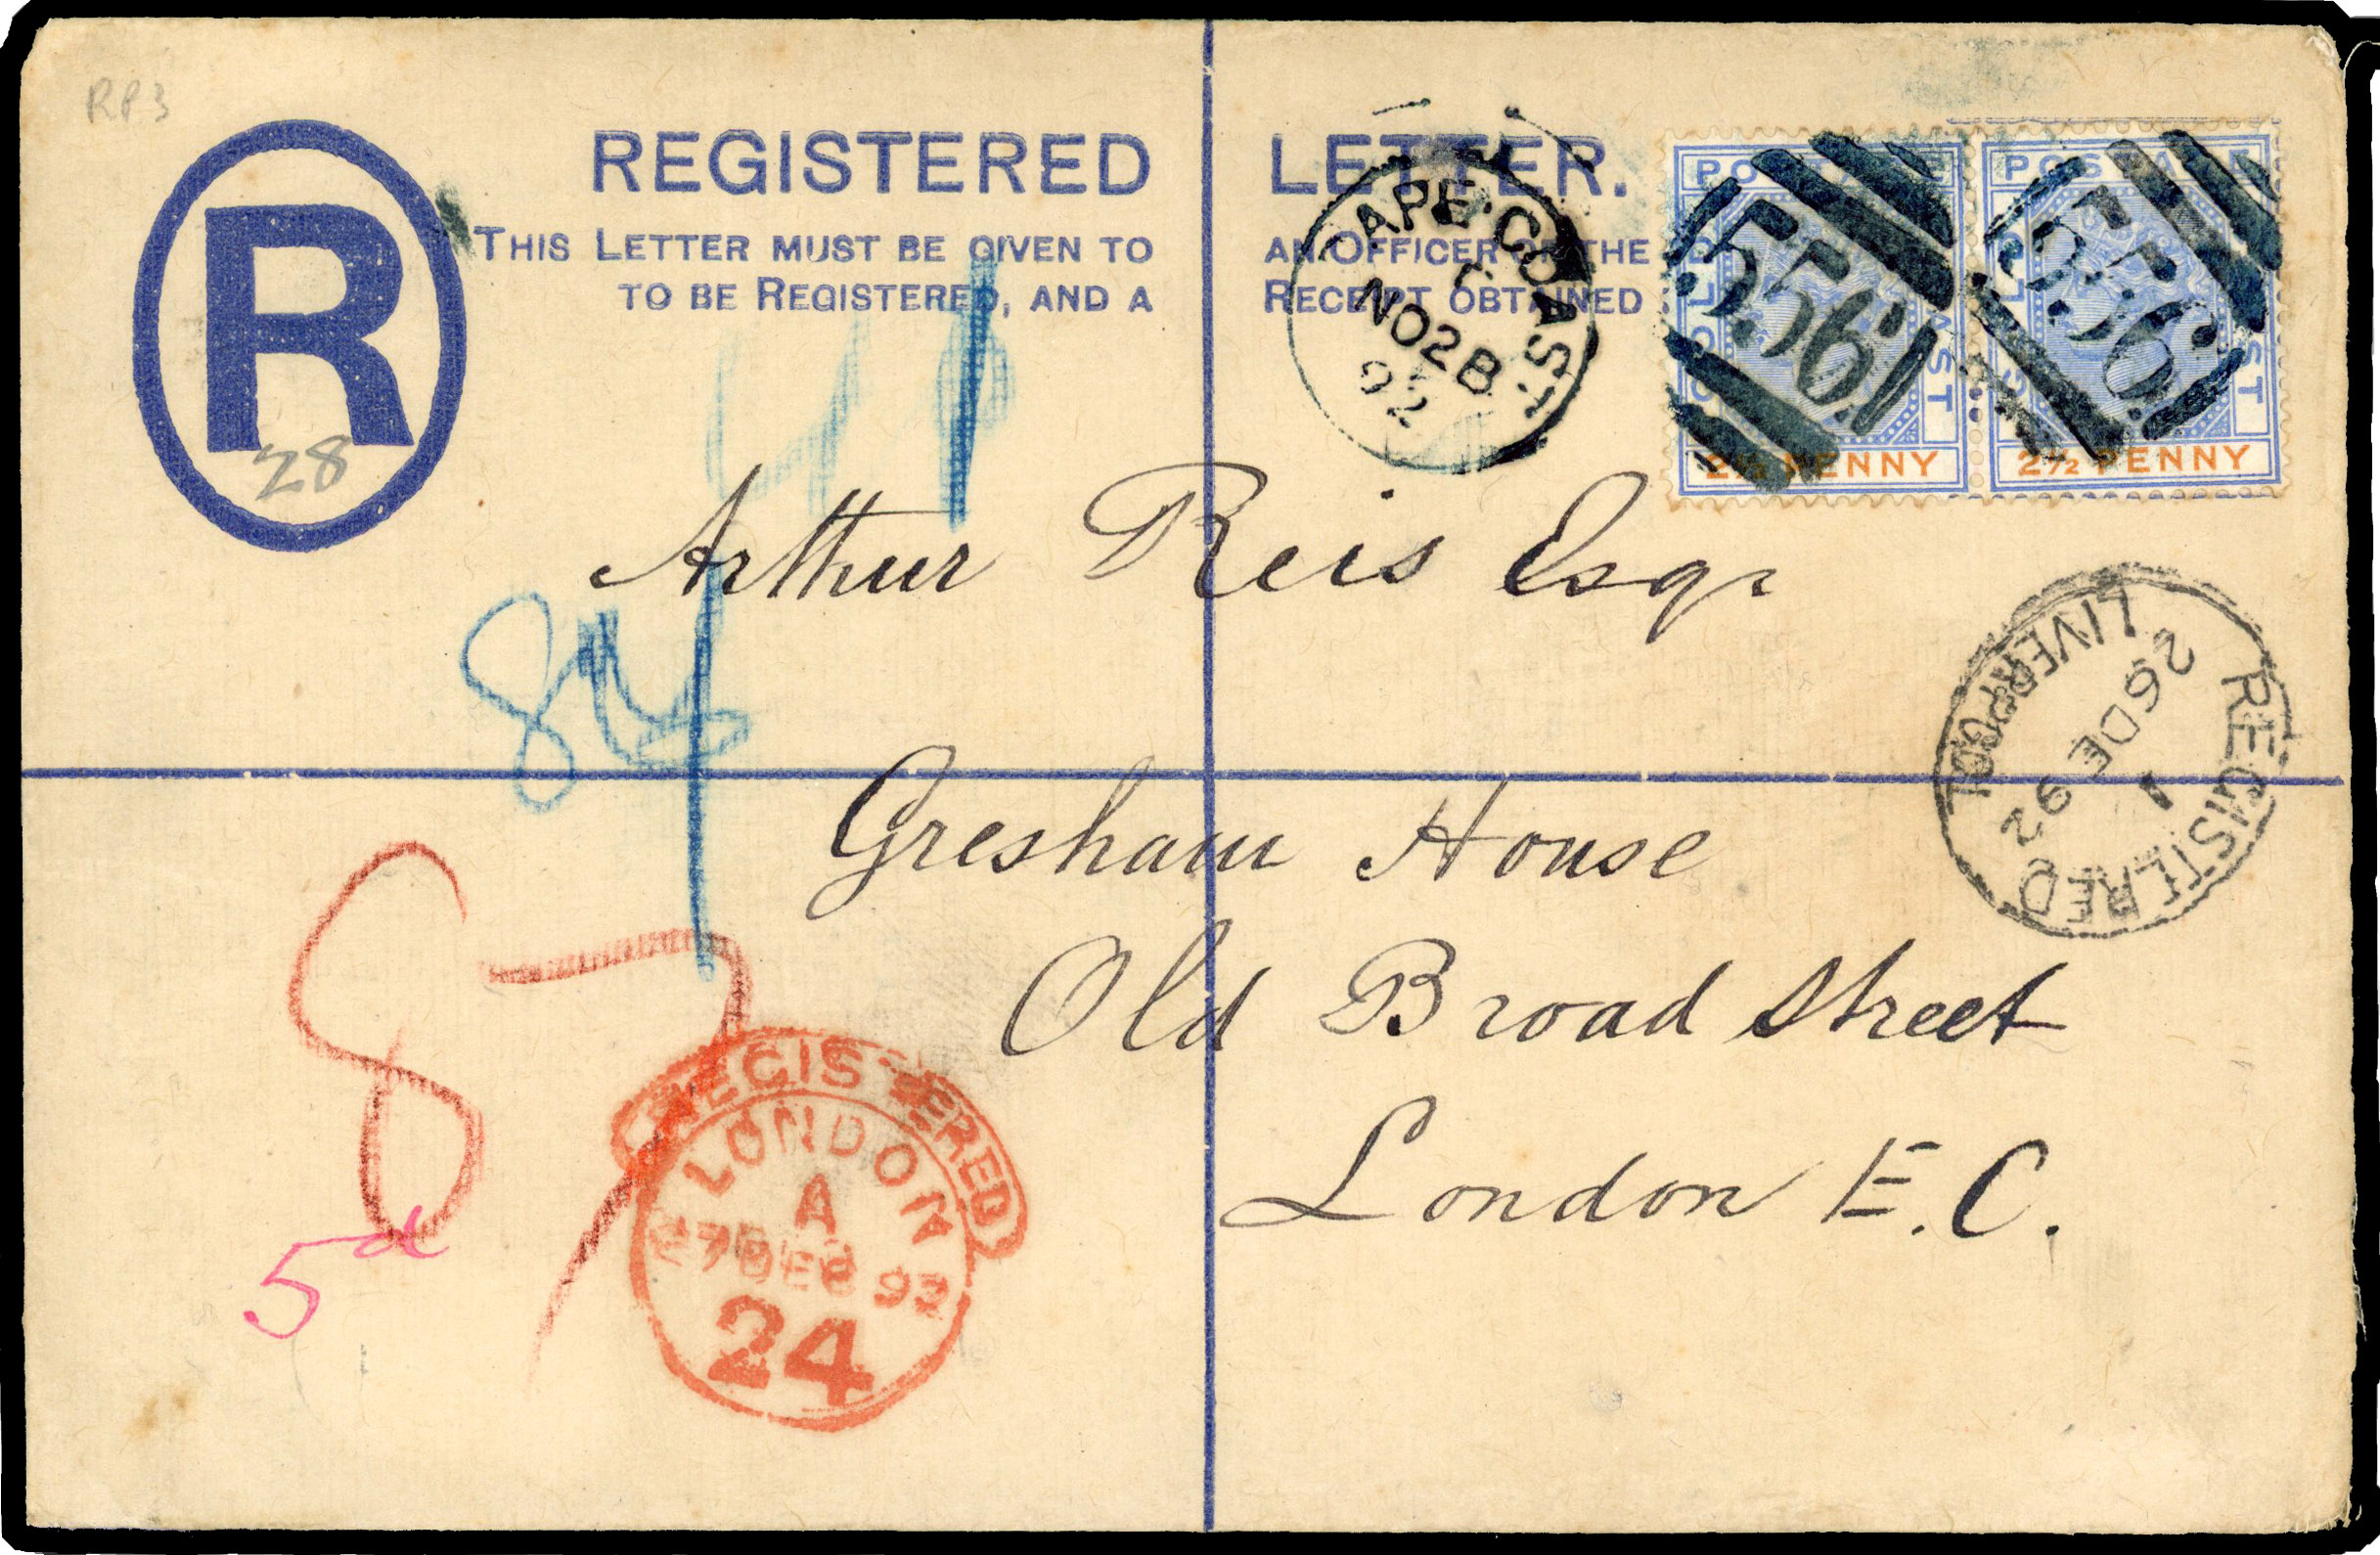 RP3
REGISTERED LETTER.
THIS LETTER MUST BE GIVEN TO AN OFFICER OF THE
TO BE REGISTERED, AND A RECEIPT OBTAINED
R
28
CAPE·COAST
NO 28
92
POSTAGE
2½ PENNY
556
POSTAGE
2½ PENNY
556
Arthur Reis Esqr
84
REGISTERED
LIVERPOOL
1
26 DE 92
Gresham House
Old Broad Street
London E.C.
87
5d
REGISTERED
LONDON
A
27 DE 92
24